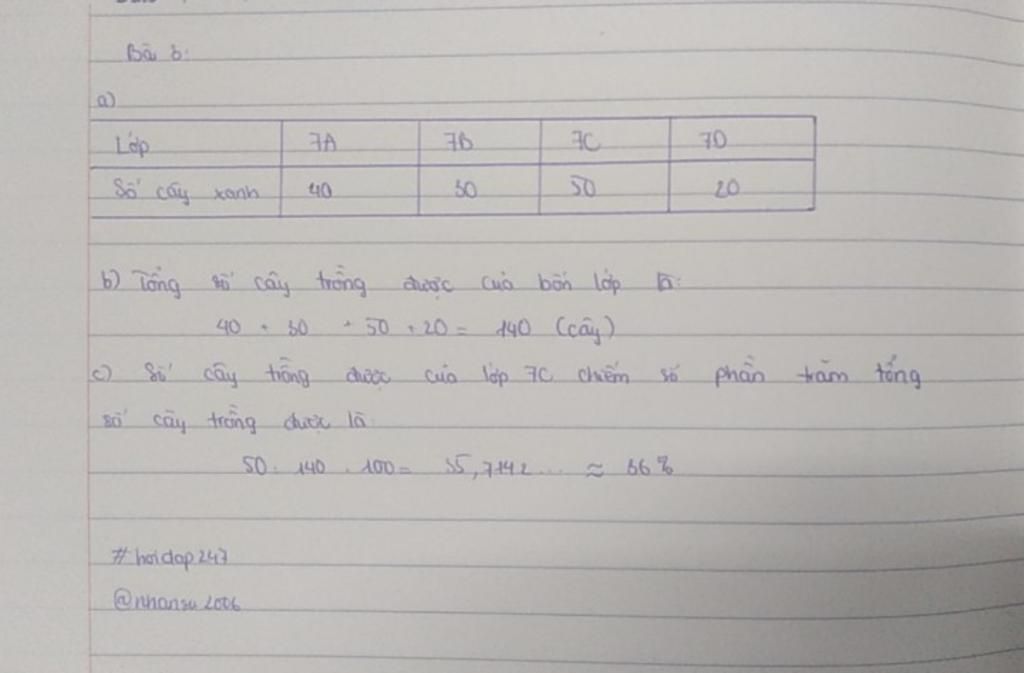 Bài 3:
a)
Lớp 7A 7B 7C 7D
Số cây xanh 40 30 50 20
b) Tổng số cây trồng được của bốn lớp là:
40 + 30 + 50 + 20 = 140 (cây)
c) Số cây trồng được của lớp 7C chiếm số phần trăm tổng
số cây trồng được là:
50 : 140 . 100 = 35,7142... ≈ 36%
#hoidap247
@nhansu2006